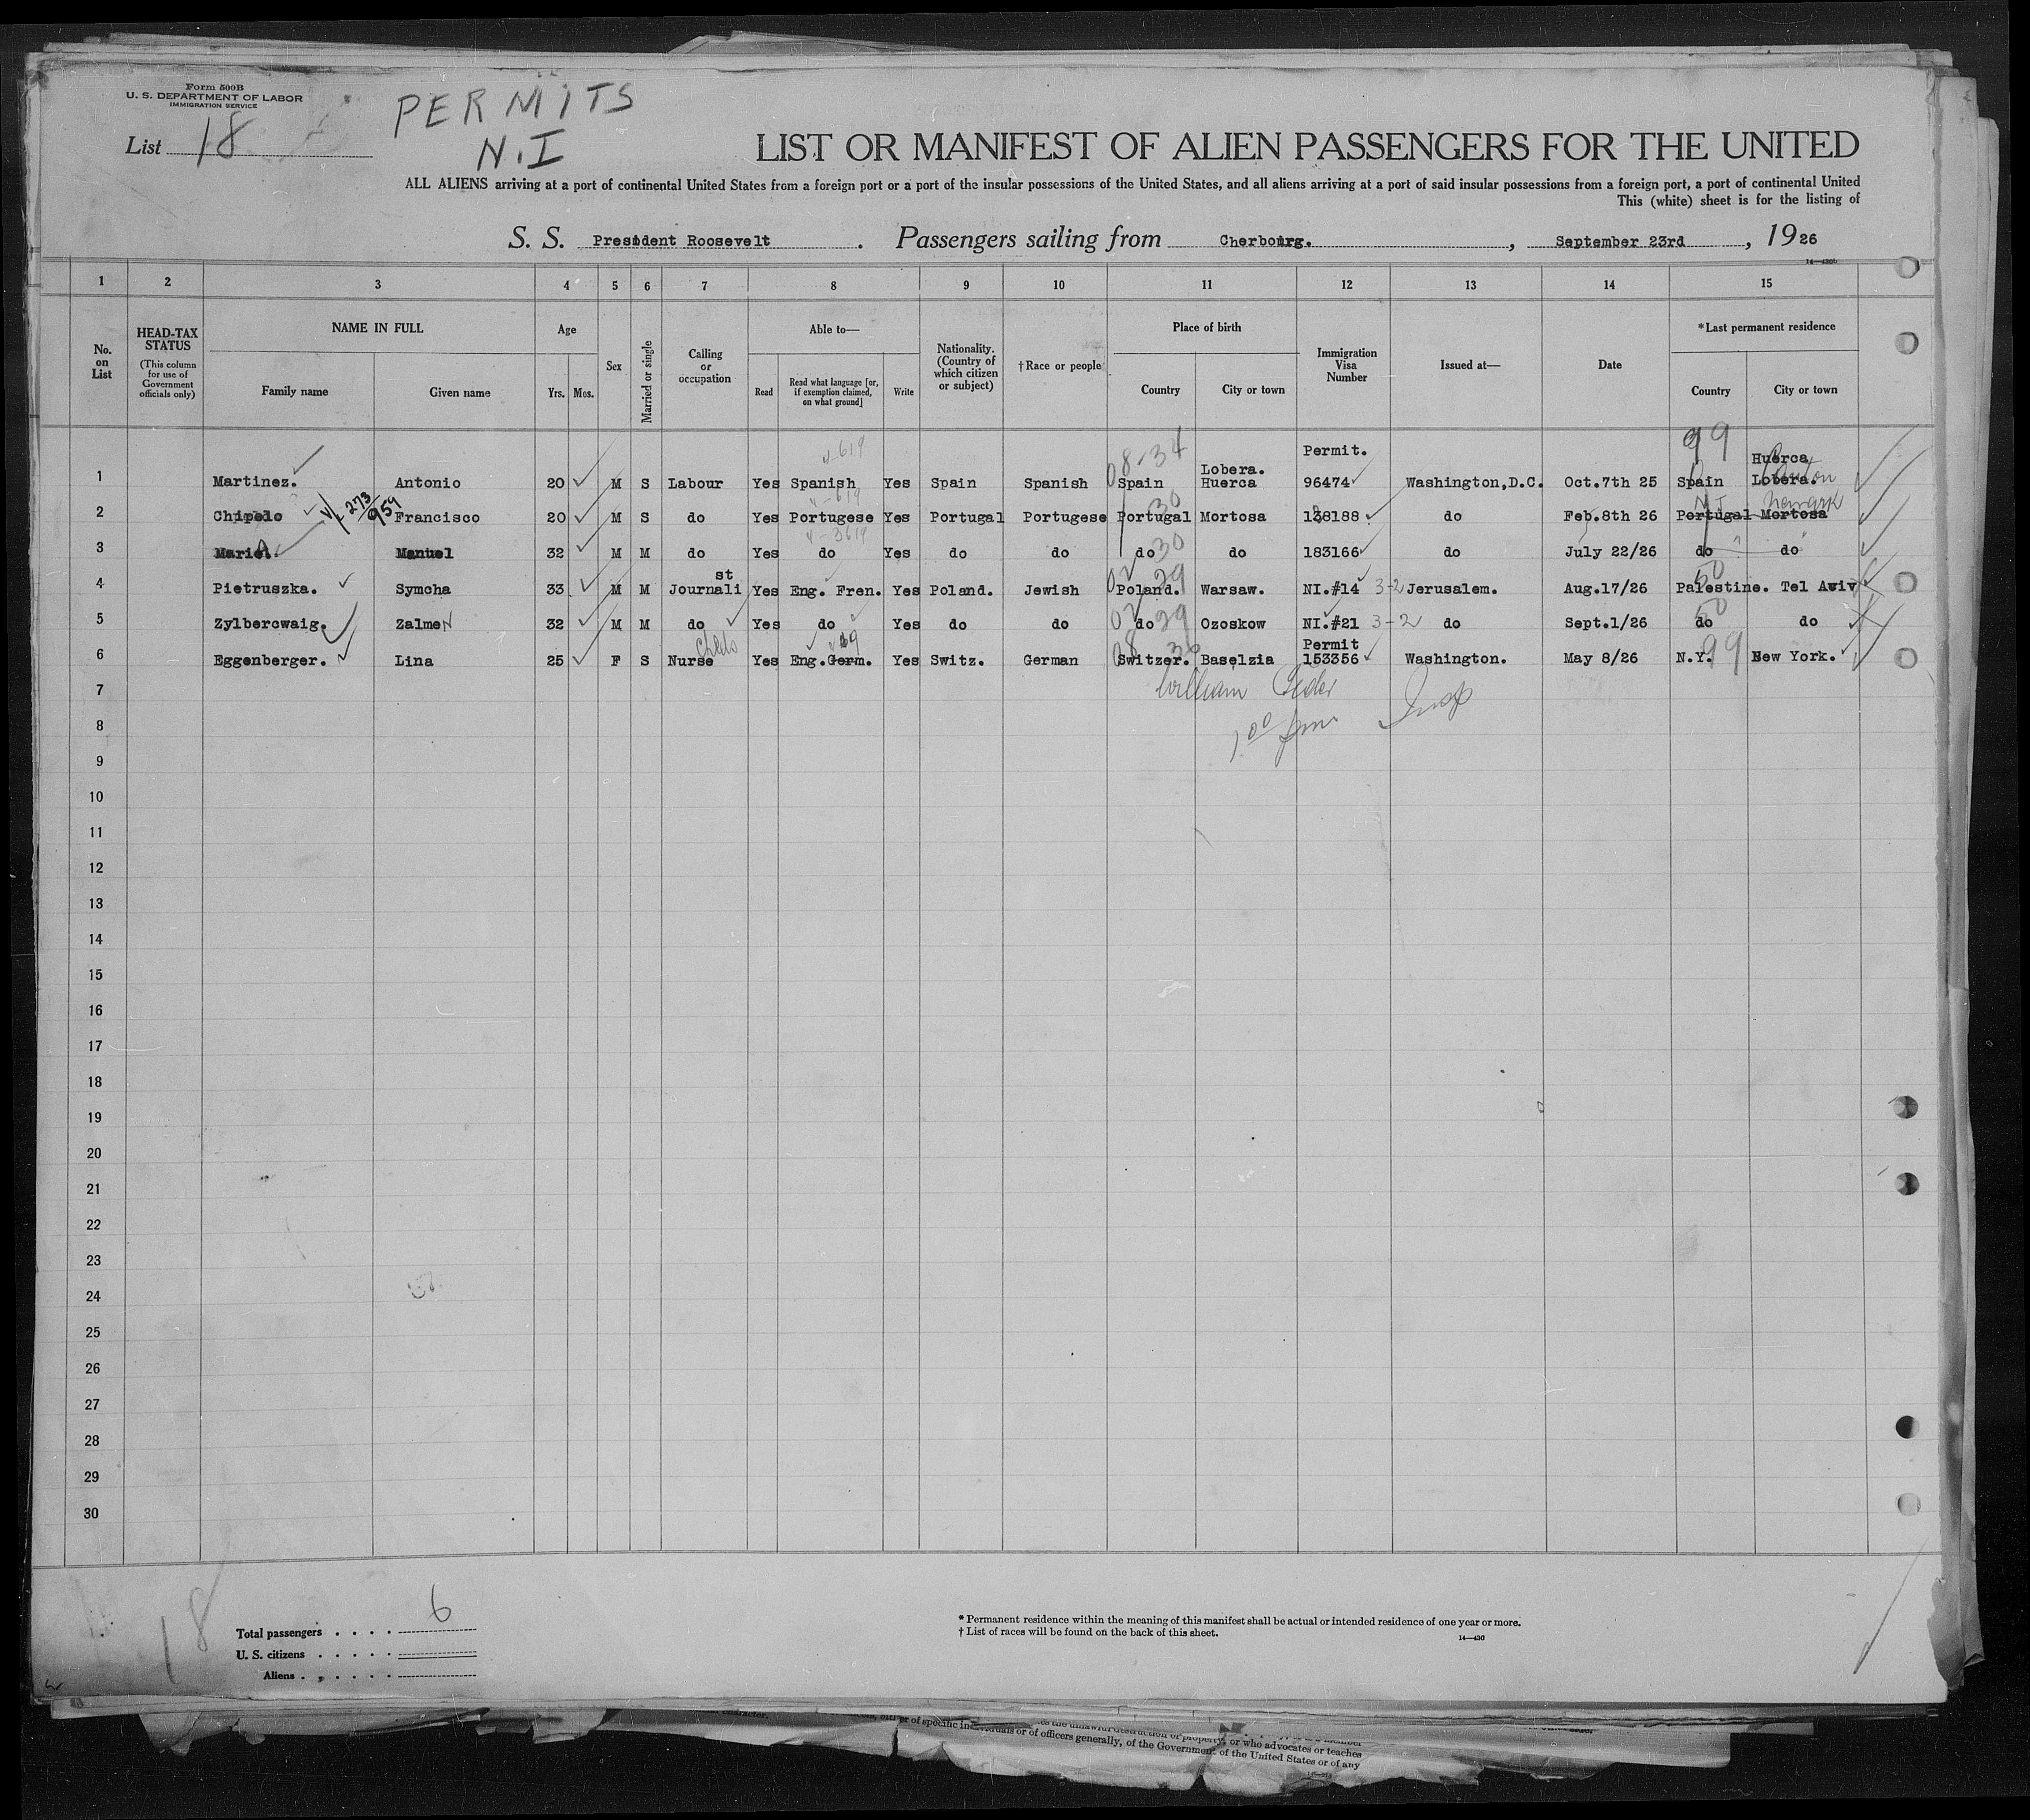 Form 500B
U. S. DEPARTMENT OF LABOR
IMMIGRATION SERVICE
List 18
PERMITS
N.I
LIST OR MANIFEST OF ALIEN PASSENGERS FOR THE UNITED
ALL ALIENS arriving at a port of continental United States from a foreign port or a port of the insular possessions of the United States, and all aliens arriving at a port of said insular possessions from a foreign port, a port of continental United
This (white) sheet is for the listing of
S. S. President Roosevelt. Passengers sailing from Cherbourg. , September 23rd , 1926
1 2 3 4 5 6 7 8 9 10 11 12 13 14 15
No. on List
HEAD-TAX STATUS (This column for use of Government officials only)
NAME IN FULL Family name Given name
Age Yrs. Mos.
Sex
Married or single
Calling or occupation
Able to— Read Read what language [or, if exemption claimed, on what ground] Write
Nationality. (Country of which citizen or subject)
† Race or people
Place of birth Country City or town
Immigration Visa Number
Issued at—
Date
*Last permanent residence Country City or town
4-619 08-34 Lobera. Permit. 99 Huerca
1 Martinez. Antonio 20 M S Labour Yes Spanish Yes Spain Spanish Spain Huerca 96474 Washington,D.C. Oct.7th 25 Spain Lobera. Canton
V/L 273/959 4-619 30 N.J. Newark
2 Chipelo Francisco 20 M S do Yes Portugese Yes Portugal Portugese Portugal Mortosa 128188 do Feb.8th 26 Portugal Mortosa
4-3619 30
3 Maria. Manuel 32 M M do Yes do Yes do do do do 183166 do July 22/26 do do
02 29 50
4 Pietruszka. Symcha 33 M M Journalist Yes Eng. Fren. Yes Poland. Jewish Poland. Warsaw. NI.#14 3-2 Jerusalem. Aug.17/26 Palestine. Tel Aviv
02 29 50
5 Zylbercwaig. Zalmen 32 M M do Yes do Yes do do do Ozoskow NI.#21 3-2 do Sept.1/26 do do
Childs Permit 99
6 Eggenberger. Lina 25 F S Nurse Yes Eng.Germ. Yes Switz. German Switzer. Baselzia 153356 Washington. May 8/26 N.Y. New York.
7 William Insp
8 1.00 pm
9
10
11
12
13
14
15
16
17
18
19
20
21
22
23
24
25
26
27
28
29
30
18
Total passengers . . . . 6
U. S. citizens . . . . .
Aliens . . . . . .
* Permanent residence within the meaning of this manifest shall be actual or intended residence of one year or more.
† List of races will be found on the back of this sheet.
14—430
or who advocates or teaches
or of officers generally, of the Government of the United States or of any